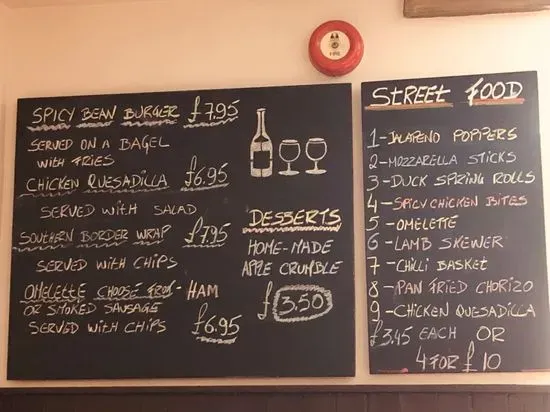 SPICY BEAN BURGER £7.95
SERVED ON A BAGEL
WITH FRIES
CHICKEN QUESADILLA £6.95
SERVED WITH SALAD
SOUTHERN BORDER WRAP £7.95
SERVED WITH CHIPS
OMELETTE CHOOSE FROM - HAM
OR SMOKED SAUSAGE
SERVED WITH CHIPS £6.95
DESSERTS
HOME-MADE
APPLE CRUMBLE
£3.50
STREET FOOD
1-JALAPENO POPPERS
2-MOZZARELLA STICKS
3-DUCK SPRING ROLLS
4-SPICY CHICKEN BITES
5-OMELETTE
6-LAMB SKEWER
7-CHILLI BASKET
8-PAN FRIED CHORIZO
9-CHICKEN QUESADILLA
£3.45 EACH OR
4 FOR £10
FIRE